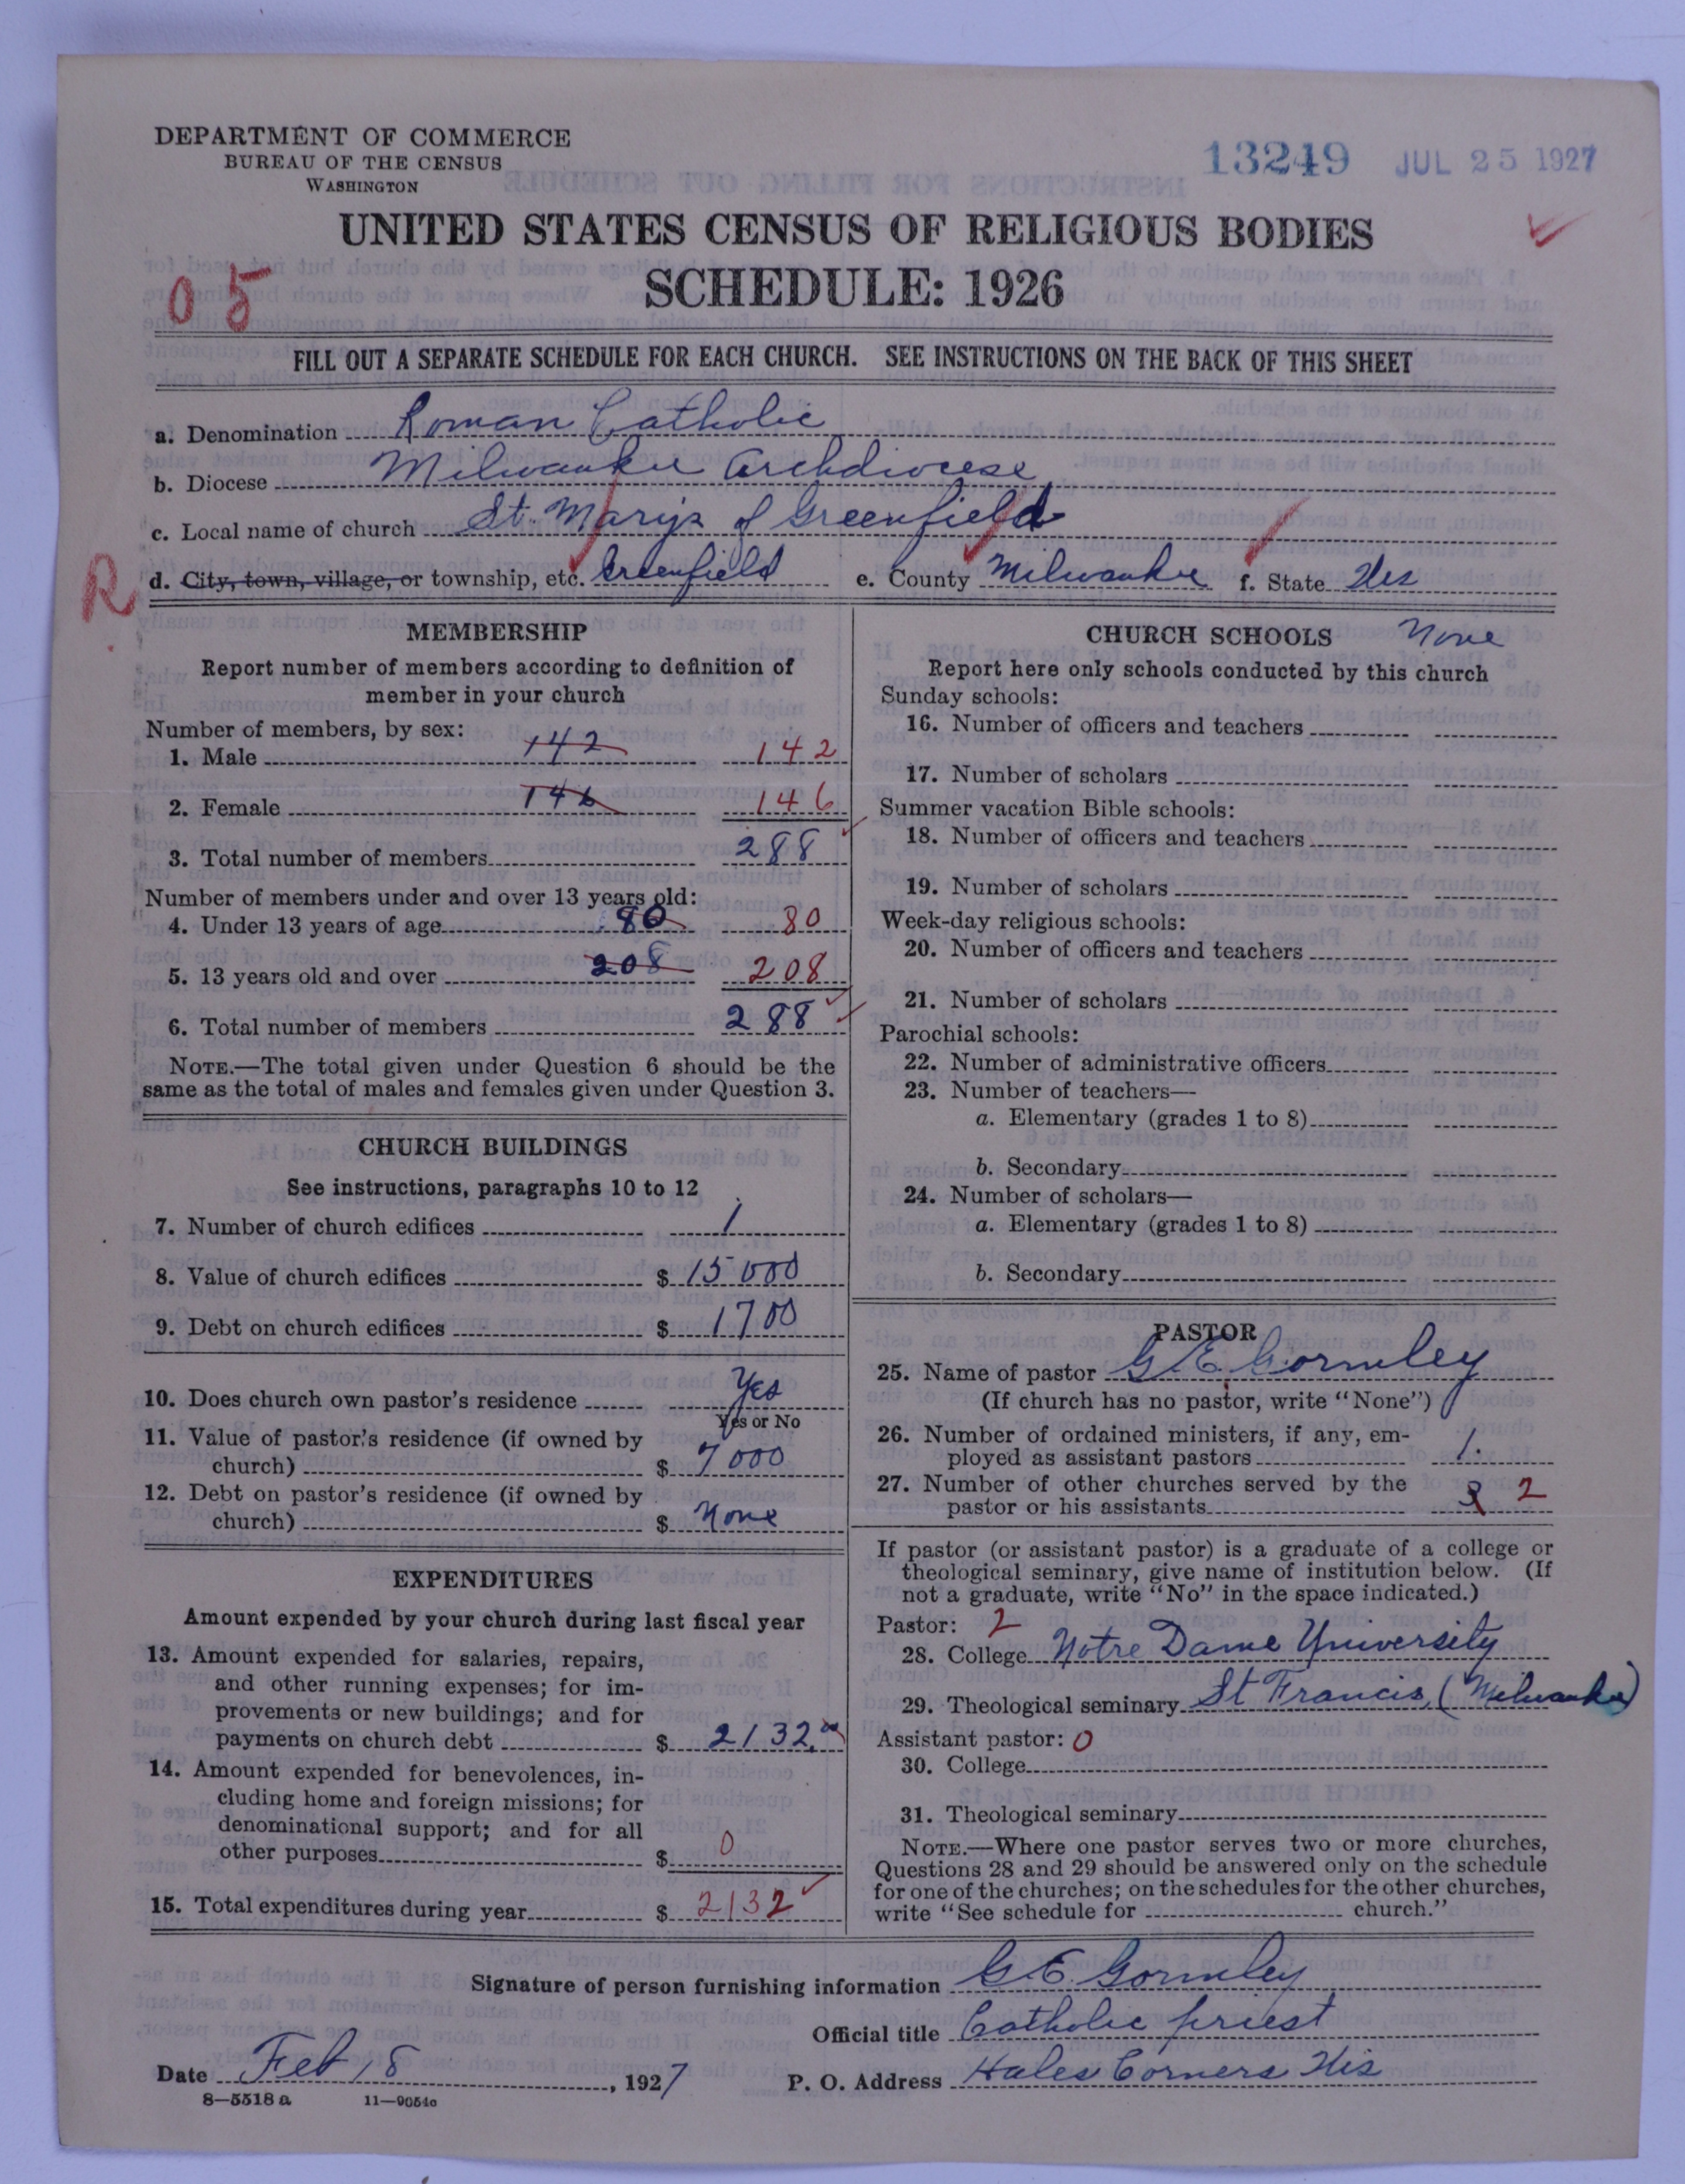 DEPARTMENT OF COMMERCE
BUREAU OF THE CENSUS
WASHINGTON
13249 JUL 25 1927
UNITED STATES CENSUS OF RELIGIOUS BODIES
05
SCHEDULE: 1926
FILL OUT A SEPARATE SCHEDULE FOR EACH CHURCH. SEE INSTRUCTIONS ON THE BACK OF THIS SHEET
a. Denomination Roman Catholic
b. Diocese Milwaukee Archdiocese
c. Local name of church St. Marys of Greenfield
R d. City, town, village, or township, etc. Greenfield e. County Milwaukee f. State Wis
MEMBERSHIP
Report number of members according to definition of
member in your church
Number of members, by sex:
1. Male 142 142
2. Female 146 146
3. Total number of members 288
Number of members under and over 13 years old:
4. Under 13 years of age 80 80
5. 13 years old and over 208 208
6. Total number of members 288
NOTE.—The total given under Question 6 should be the
same as the total of males and females given under Question 3.
CHURCH BUILDINGS
See instructions, paragraphs 10 to 12
7. Number of church edifices 1
8. Value of church edifices $ 15000
9. Debt on church edifices $ 1700
10. Does church own pastor's residence Yes
Yes or No
11. Value of pastor's residence (if owned by
church) $ 7000
12. Debt on pastor's residence (if owned by
church) $ None
EXPENDITURES
Amount expended by your church during last fiscal year
13. Amount expended for salaries, repairs,
and other running expenses; for im-
provements or new buildings; and for
payments on church debt $ 2132.00
14. Amount expended for benevolences, in-
cluding home and foreign missions; for
denominational support; and for all
other purposes $ 0
15. Total expenditures during year $ 2132
CHURCH SCHOOLS None
Report here only schools conducted by this church
Sunday schools:
16. Number of officers and teachers
17. Number of scholars
Summer vacation Bible schools:
18. Number of officers and teachers
19. Number of scholars
Week-day religious schools:
20. Number of officers and teachers
21. Number of scholars
Parochial schools:
22. Number of administrative officers
23. Number of teachers—
a. Elementary (grades 1 to 8)
b. Secondary
24. Number of scholars—
a. Elementary (grades 1 to 8)
b. Secondary
PASTOR
25. Name of pastor G. E. Gormley
(If church has no pastor, write "None")
26. Number of ordained ministers, if any, em-
ployed as assistant pastors 1.
27. Number of other churches served by the
pastor or his assistants 2
If pastor (or assistant pastor) is a graduate of a college or
theological seminary, give name of institution below. (If
not a graduate, write "No" in the space indicated.)
Pastor: 2
28. College Notre Dame University
29. Theological seminary St Francis (Milwaukee)
Assistant pastor: 0
30. College
31. Theological seminary
NOTE.—Where one pastor serves two or more churches,
Questions 28 and 29 should be answered only on the schedule
for one of the churches; on the schedules for the other churches,
write "See schedule for church."
Signature of person furnishing information G. E. Gormley
Official title Catholic priest
Date Feb 18, 1927 P. O. Address Hales Corners Wis
8—5518 a 11—9054c